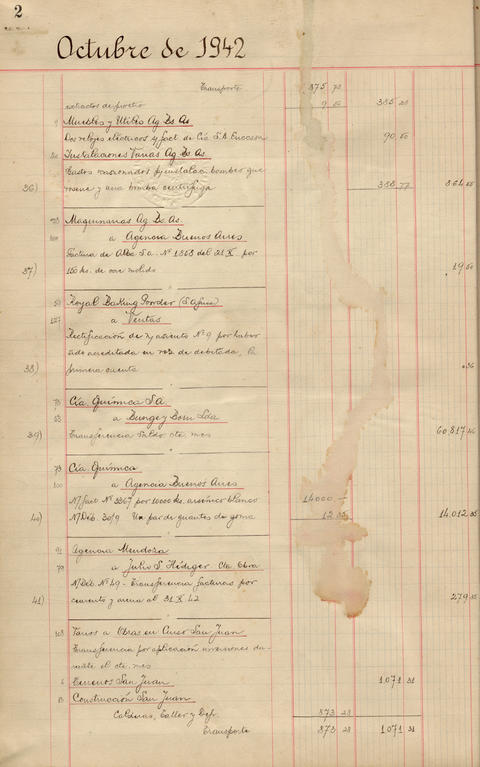 2
Octubre de 1942
Transporte 375 70
9 50 385 20
9 Muebles y Utiles Ag. Bs. As.
Dos relojes eléctricos s/fact. de Cia S.A. Ericsson 90 50
Instalaciones Varias Ag. Bs. As.
Gastos ocasionados p/instalac. bombas que
36) rosene y una bomba centrífuga 388 77 864
Maquinarias Ag. Bs. As.
a Agencia Buenos Aires
Factura de Alba S.a. Nº 1363 del 21 X por
37) 150 ks. de molido 19 50
Royal Baking Powder
127 a Ventas
Rectificación de n/ asiento Nº 9 por haber
sido acreditada en vez de debitada, la
38) primera cuenta 36
73 Cía. Química SA
53 a Bunge y Born Lda
39) Transferencia saldo cte. mes 60.817
73 Cía. Química
100 a Agencia Buenos Aires
N/fact Nº 3367 por 1000 ks. arsénico blanco 14000
40) N/Déb. 3019 Un par de guantes de goma 12 14.012
91 Agencia Mendoza
79 a Julio S. Hediger Cta Obra
N/Déb. Nº 49 - Transferencia facturas por
41) cemento y arena al 31 X 42 279
103 Varios a Obras en Curso San Juan
Transferencia por aplicación inversiones du-
rante el cte. mes
6 Terrenos San Juan 1.071 31
13 Construcción San Juan
Calderas, Taller y Dep. 873 28
Transporte 873 28 1071 31